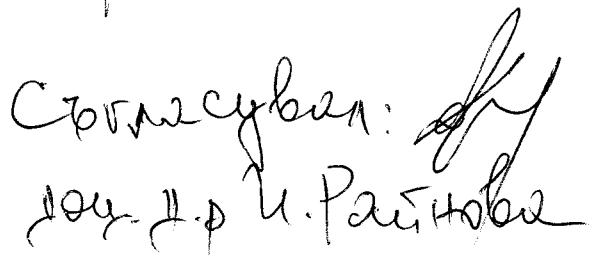 Съгласувал:
доц. д-р И. Райнова